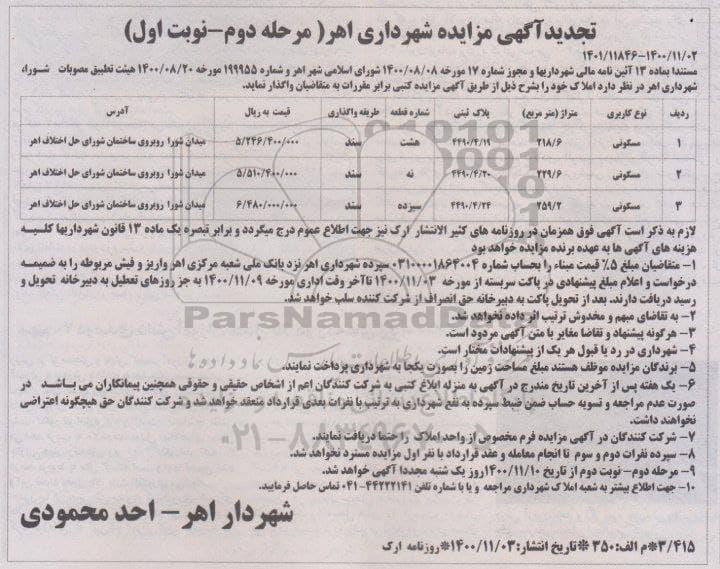 تجدیدآگهی مزایده شهرداری اهر( مرحله دوم-نوبت اول)
۱۴۰۱/۱۱۸۴۶-۱۴۰۰/۱۱/۰۲
مستندا بماده ۱۳ آئین نامه مالی شهرداریها و مجوز شماره ۱۷ مورخه ۱۴۰۰/۰۸/۰۸ شورای اسلامی شهر اهر و شماره ۱۹۹۹۵۵ مورخه ۱۴۰۰/۰۸/۲۰ هیئت تطبیق مصوبات شورا،
شهرداری اهر در نظر دارد املاک خود را بشرح ذیل از طریق آگهی مزایده کتبی برابر مقررات به متقاضیان واگذار نماید.
ردیف نوع کاربری متراژ (متر مربع) پلاک ثبتی شماره قطعه طریقه واگذاری قیمت به ریال آدرس
۱ مسکونی ۲۱۸/۶ ۴۴۹۰/۴/۱۹ هشت سند ۵/۲۴۶/۴۰۰/۰۰۰ میدان شورا روبروی ساختمان شورای حل اختلاف اهر
۲ مسکونی ۲۲۹/۶ ۴۴۹۰/۴/۲۰ نه سند ۵/۵۱۰/۴۰۰/۰۰۰ میدان شورا روبروی ساختمان شورای حل اختلاف اهر
۳ مسکونی ۲۵۹/۲ ۴۴۹۰/۴/۲۴ سیزده سند ۶/۴۸۰/۰۰۰/۰۰۰ میدان شورا روبروی ساختمان شورای حل اختلاف اهر
لازم به ذکر است آگهی فوق همزمان در روزنامه های کثیر الانتشار ارک نیز جهت اطلاع عموم درج میگردد و برابر تبصره یک ماده ۱۳ قانون شهرداریها کلیه
هزینه های آگهی ها به عهده برنده مزایده خواهد بود
۱- متقاضیان مبلغ ۵٪ قیمت مبناء را بحساب شماره ۰۳۱۰۰۰۰۱۸۶۴۰۰۴ سپرده شهرداری اهر نزد بانک ملی شعبه مرکزی اهر واریز و فیش مربوطه را به ضمیمه
درخواست و اعلام مبلغ پیشنهادی در پاکت سربسته از مورخه ۱۴۰۰/۱۱/۰۳ تاآخر وقت اداری مورخه ۱۴۰۰/۱۱/۰۹ به جز روزهای تعطیل به دبیرخانه تحویل و
رسید دریافت دارند. بعد از تحویل پاکت به دبیرخانه حق انصراف از شرکت کننده سلب خواهد شد.
۲- به تقاضای مبهم و مخدوش ترتیب اثر داده نخواهد شد.
۳- هرگونه پیشنهاد و تقاضا مغایر با متن آگهی مردود است.
۴- شهرداری در رد یا قبول هر یک از پیشنهادات مختار است.
۵- برندگان مزایده موظف هستند مبلغ مساحت زمین را بصورت یکجا به شهرداری پرداخت نمایند.
۶- یک هفته پس از آخرین تاریخ مندرج در آگهی به منزله ابلاغ کتبی به شرکت کنندگان اعم از اشخاص حقیقی و حقوقی همچنین پیمانکاران می باشد در
صورت عدم مراجعه و تسویه حساب ضمن ضبط سپرده به نفع شهرداری به ترتیب با نفرات بعدی قرارداد منعقد خواهد شد و شرکت کنندگان حق هیچگونه اعتراضی
نخواهند داشت.
۷- شرکت کنندگان در آگهی مزایده فرم مخصوص از واحد املاک راحتما دریافت نمایند.
۸- سپرده نفرات دوم و سوم تا انجام معامله و عقد قرارداد با نفر اول مزایده مسترد نخواهد شد.
۹- مرحله دوم- نوبت دوم از تاریخ ۱۴۰۰/۱۱/۱۰روز یک شنبه مجددا آگهی خواهد شد.
۱۰- جهت اطلاع بیشتر به شعبه املاک شهرداری مراجعه و یا با شماره تلفن ۴۴۲۲۲۱۴۱-۰۴۱ تماس حاصل فرمایید.
شهردار اهر- احد محمودی
۳/۴۱۵*م الف:۳۵۰ *تاریخ انتشار:۱۴۰۰/۱۱/۰۳*روزنامه ارک
ParsNamadData
۰۲۱-۸۸۳۴۹۶۷۰-۵